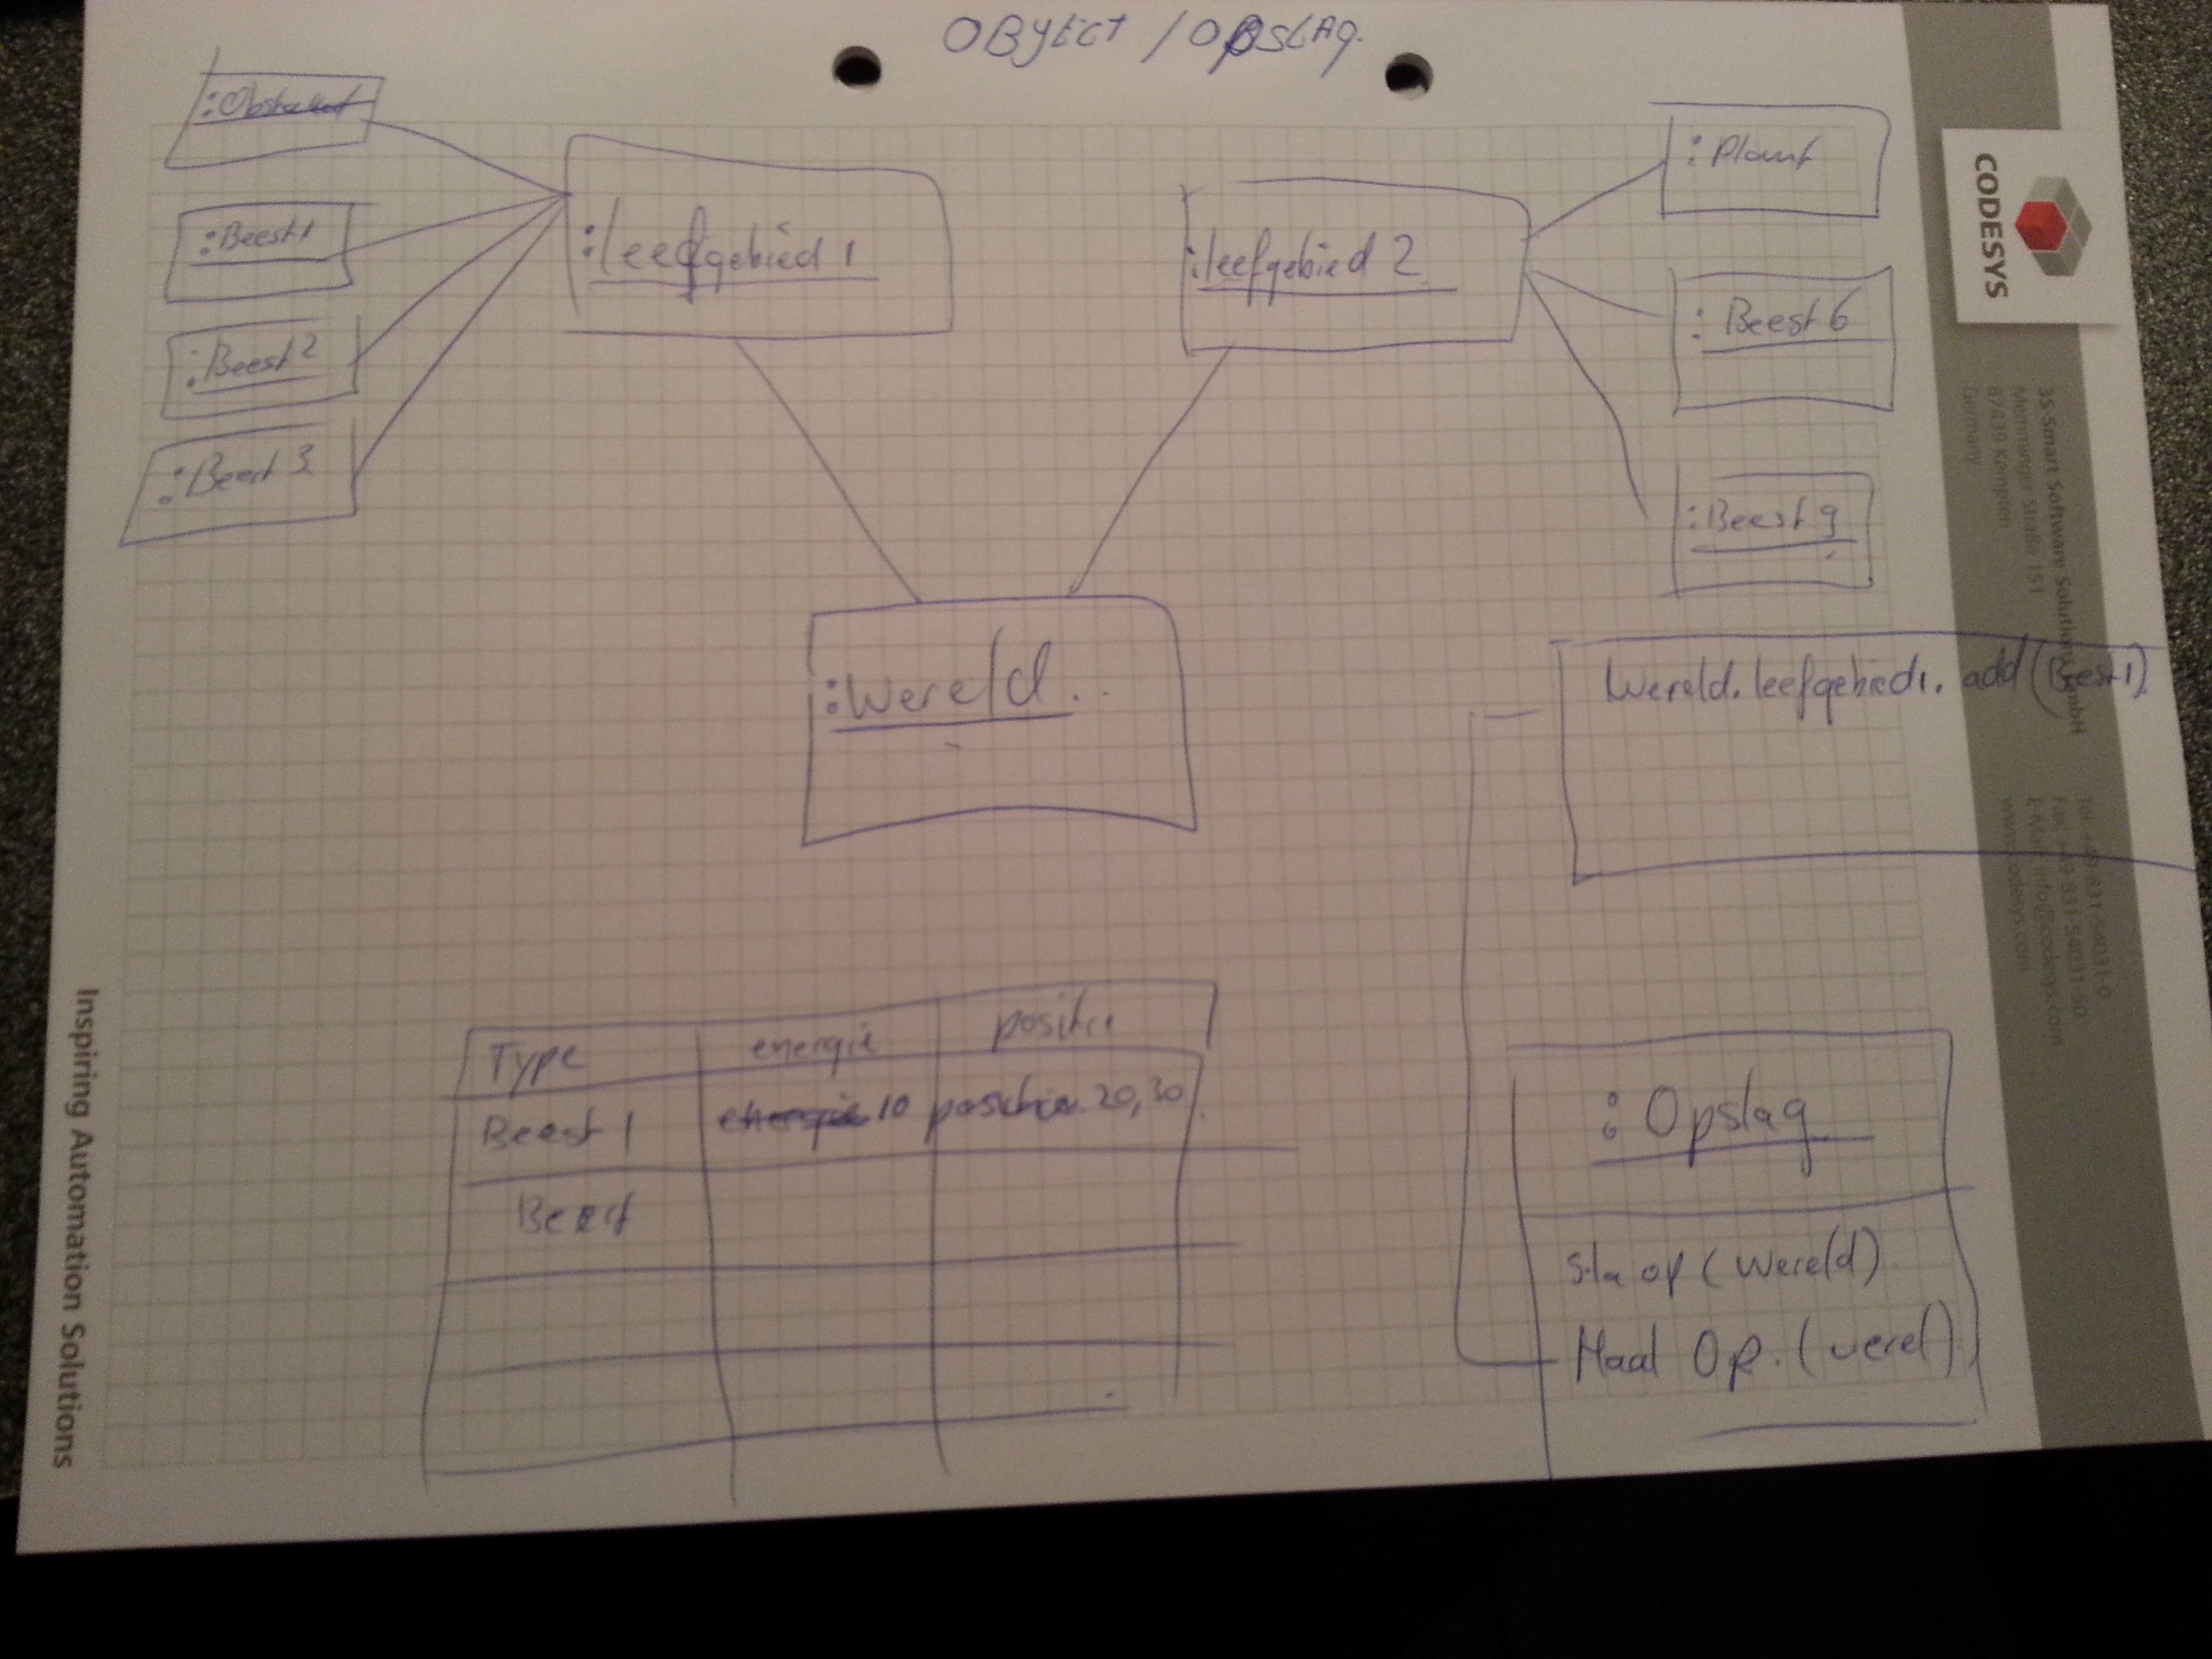 OBJECT / OPSLAG.
:Obstakel
:Beest 1
:Beest 2
:Beest 3
:leefgebied 1
:leefgebied 2
:Plant
:Beest 6
:Beest 9
:Wereld..
Wereld.leefgebied1.add(Beest1)
Type energie positie
Beest 1 energie 10 positie 20,30
Beest
:Opslag
Sla op (Wereld)
Haal Op. (werel)
CODESYS
3S-Smart Software Solutions GmbH
Memminger Straße 151
87439 Kempten
Germany
Tel. +49-831-54031-0
Fax +49-831-54031-50
E-Mail: info@codesys.com
www.codesys.com
Inspiring Automation Solutions